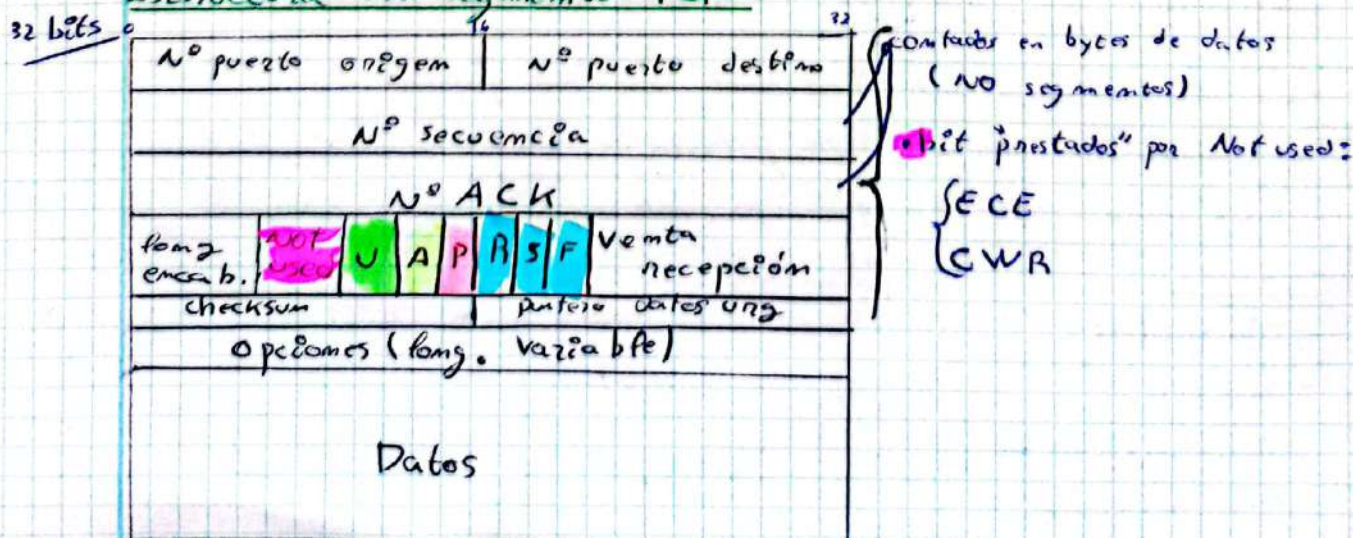 Estructura del segmento TCP
32 bits
0 16 32
Nº puerto origen Nº puerto destino
Nº secuencia
Nº ACK
long encab. NOT used U A P R S F Venta recepción
checksum puntero datos urg
Opciones (long. variable)
Datos
contados en bytes de datos
(NO segmentos)
• bit "prestados" por Not used:
ECE
CWR